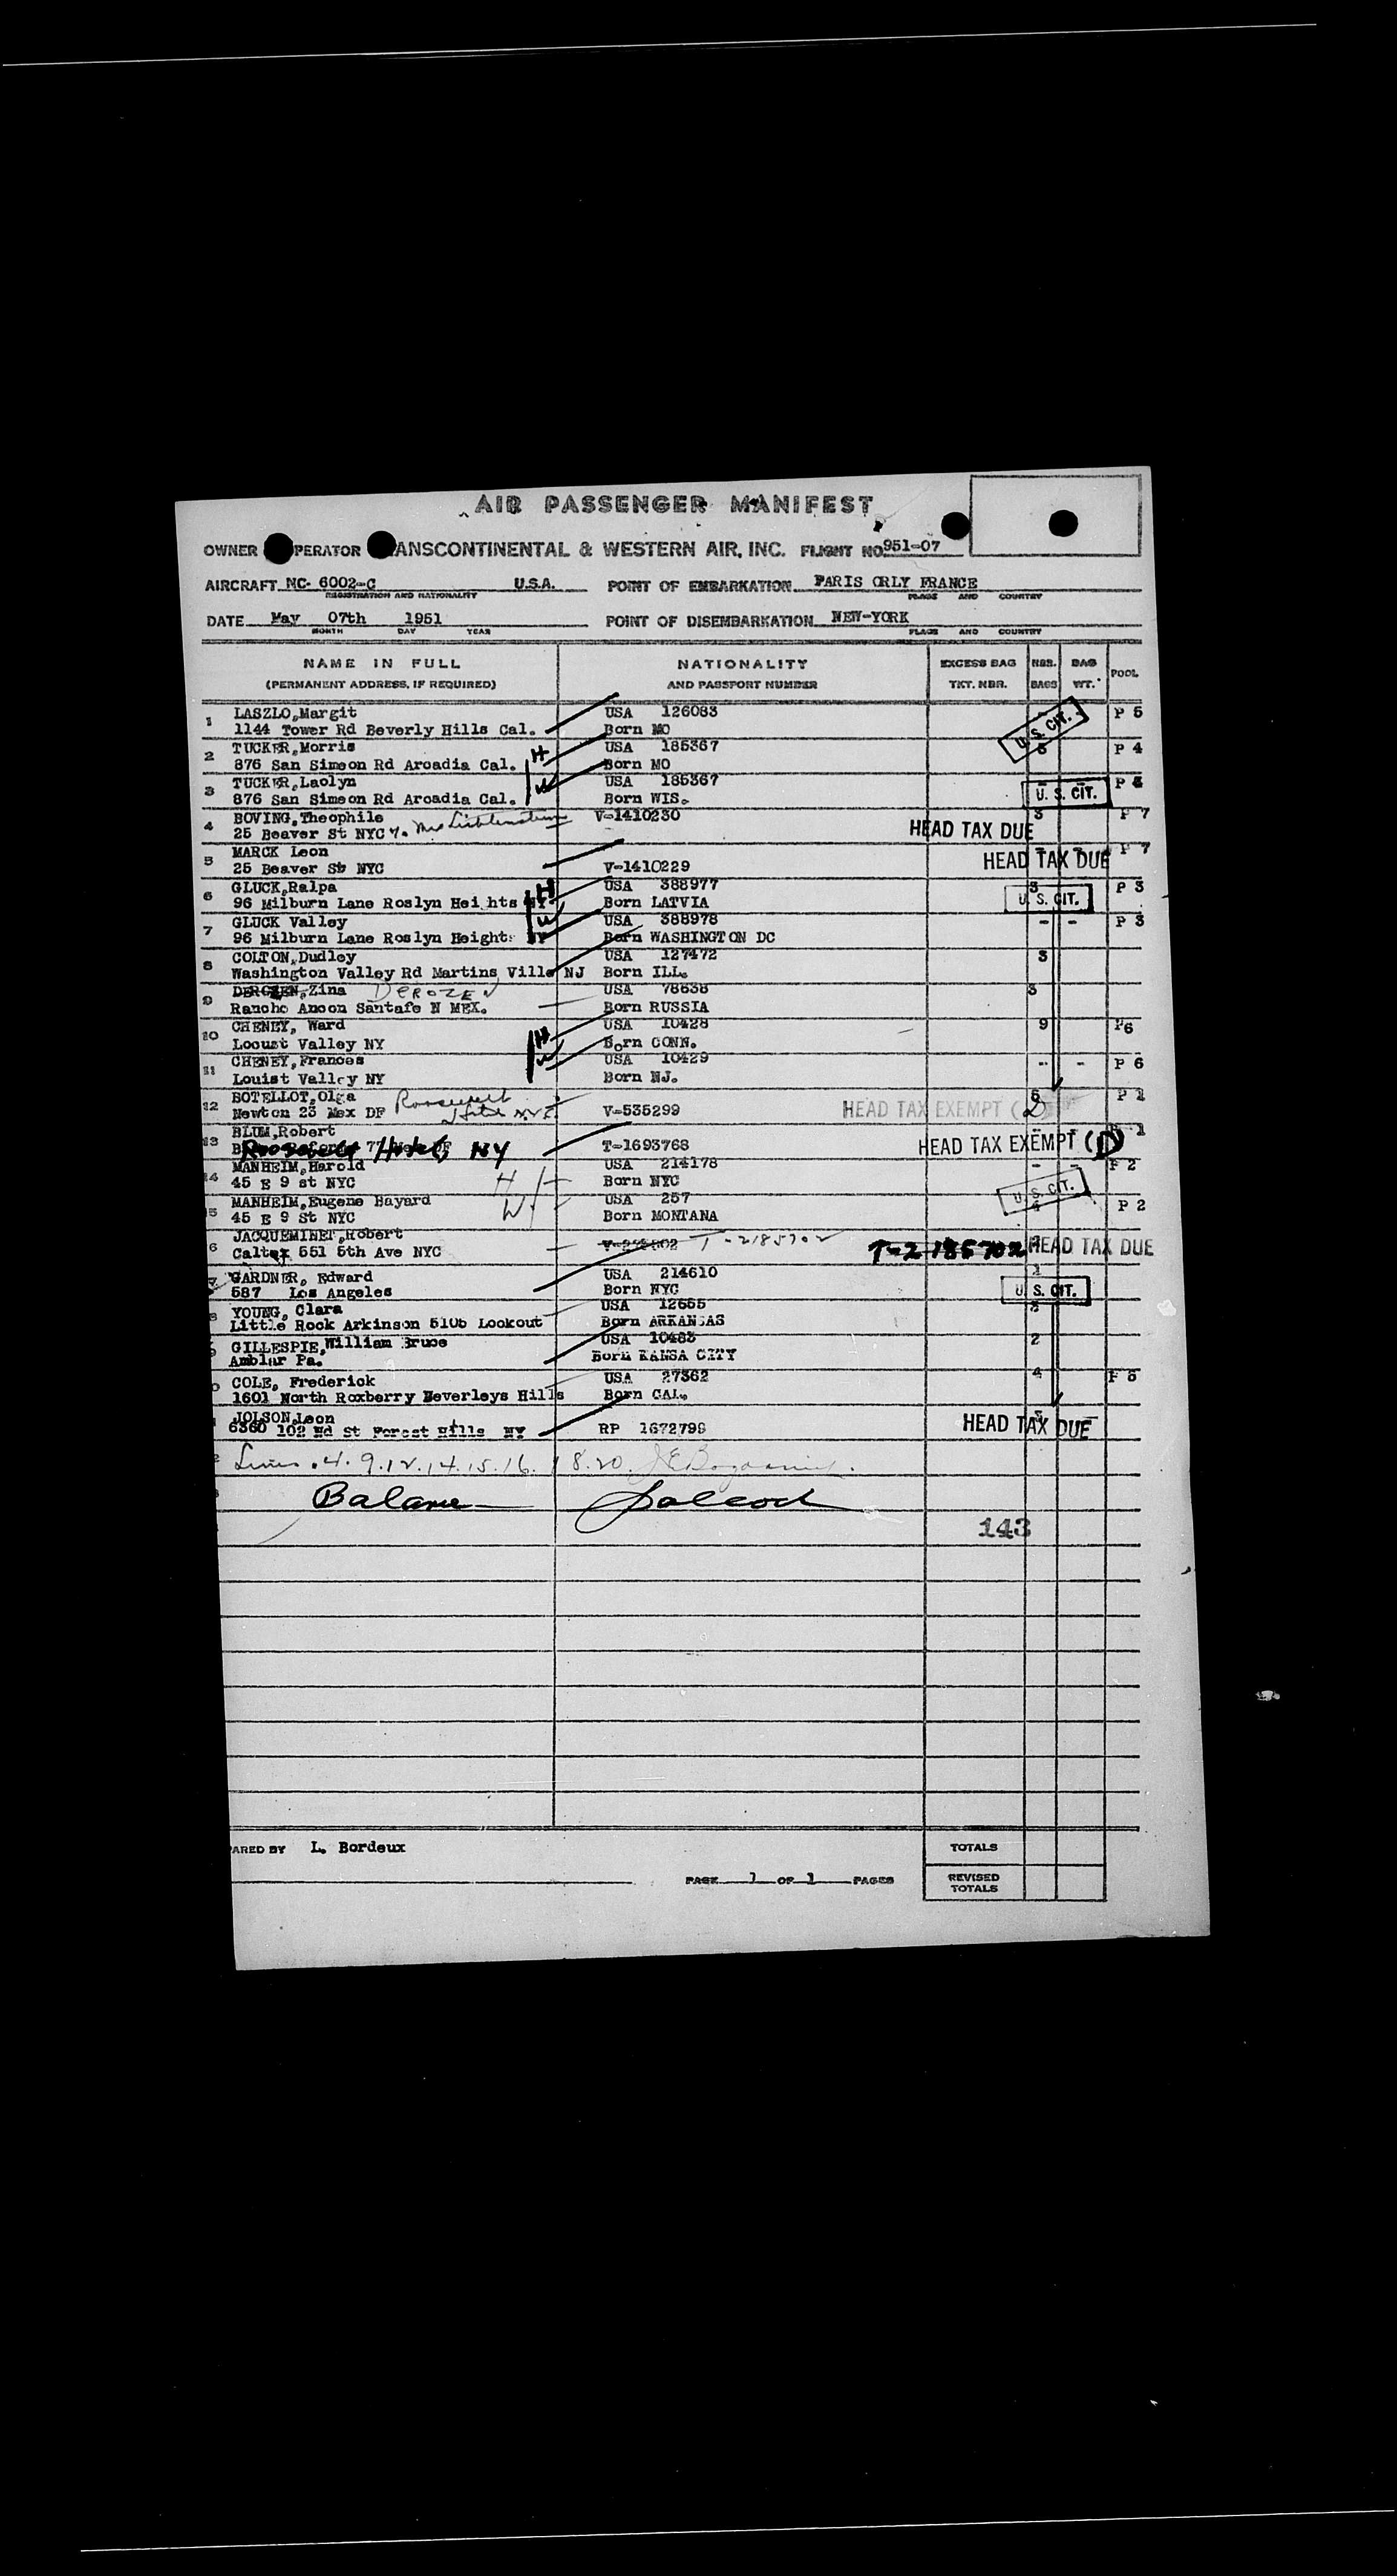 AIR PASSENGER MANIFEST
OWNER PERATOR ANSCONTINENTAL & WESTERN AIR, INC. FLIGHT NO 951-07
AIRCRAFT NC- 6002-C U.S.A. POINT OF EMBARKATION PARIS ORLY FRANCE
REGISTRATION AND NATIONALITY PLACE AND COUNTRY
DATE May 07th 1951 POINT OF DISEMBARKATION NEW-YORK
MONTH DAY YEAR PLACE AND COUNTRY
NAME IN FULL NATIONALITY EXCESS BAG NBR. BAG POOL
(PERMANENT ADDRESS, IF REQUIRED) AND PASSPORT NUMBER TKT. NBR. BAGS WT.
1 LASZLO,Margit USA 126083 P 5
1144 Tower Rd Beverly Hills Cal. Born MO U. S. CIT.
2 TUCKER,Morris H USA 185367 P 4
876 San Simeon Rd Arcadia Cal. Born MO
3 TUCKER,Laolyn W USA 185367 P 4
876 San Simeon Rd Arcadia Cal. Born WIS. U. S. CIT.
4 BOVING,Theophile V-1410230 3 P 7
25 Beaver St NYC HEAD TAX DUE
5 MARCK Leon - - P 7
25 Beaver St NYC V-1410229 HEAD TAX DUE
6 GLUCK,Ralpa H USA 388977 3 P 3
96 Milburn Lane Roslyn Hei hts NY Born LATVIA U. S. CIT.
7 GLUCK Valley W USA 388978 - - P 3
96 Milburn Lane Roslyn Height NY Born WASHINGTON DC
8 COLTON,Dudley USA 127472 3
Washington Valley Rd Martins Ville NJ Born ILL.
9 DEROZEN,Zina DEROZEN USA 78638 3
Rancho Ancon Santafe N MEX. Born RUSSIA
10 CHENEY, Ward H USA 10428 9 P6
Locust Valley NY Born CONN.
11 CHENEY,Frances W USA 10429 - - P 6
Louist Valley NY Born NJ.
12 BOTELLOT,Olga Roosevelt P 1
Newton 23 Mex DF Hotel NYC V-535299 HEAD TAX EXEMPT (D)
13 BLUM,Robert 1
Roosevelt Hotel, NY T-1693768 HEAD TAX EXEMPT (D)
14 MANHEIM,Harold H USA 214178 - - P 2
45 E 9 st NYC Born NYC U. S. CIT.
15 MANHEIM,Eugene Bayard W USA 257 4 P 2
45 E 9 St NYC Born MONTANA
6 JACQUEMINET,Robert T-2185702
Caltex 551 5th Ave NYC T-2185702 HEAD TAX DUE
GARDNER, Edward USA 214610 1
587 Los Angeles Born NYC U. S. CIT.
YOUNG, Clara USA 12655
Little Rock Arkinson 5105 Lookout Born ARKANSAS
GILLESPIE,William Bruce USA 10483 2
Amblar Pa. Born KANSA CITY
COLE, Frederick USA 27362 4 P 5
1601 North Roxberry Beverleys Hills Born CAL.
JOLSON,Leon
6360 102 Nd St Forest Hills NY RP 1672799 HEAD TAX DUE
Lines . 4. 9. 12. 14. 15. 16. 18. 20.
Balance
143
ARED BY L. Bordeux TOTALS
PAGE 1 OF 1 PAGES REVISED
TOTALS